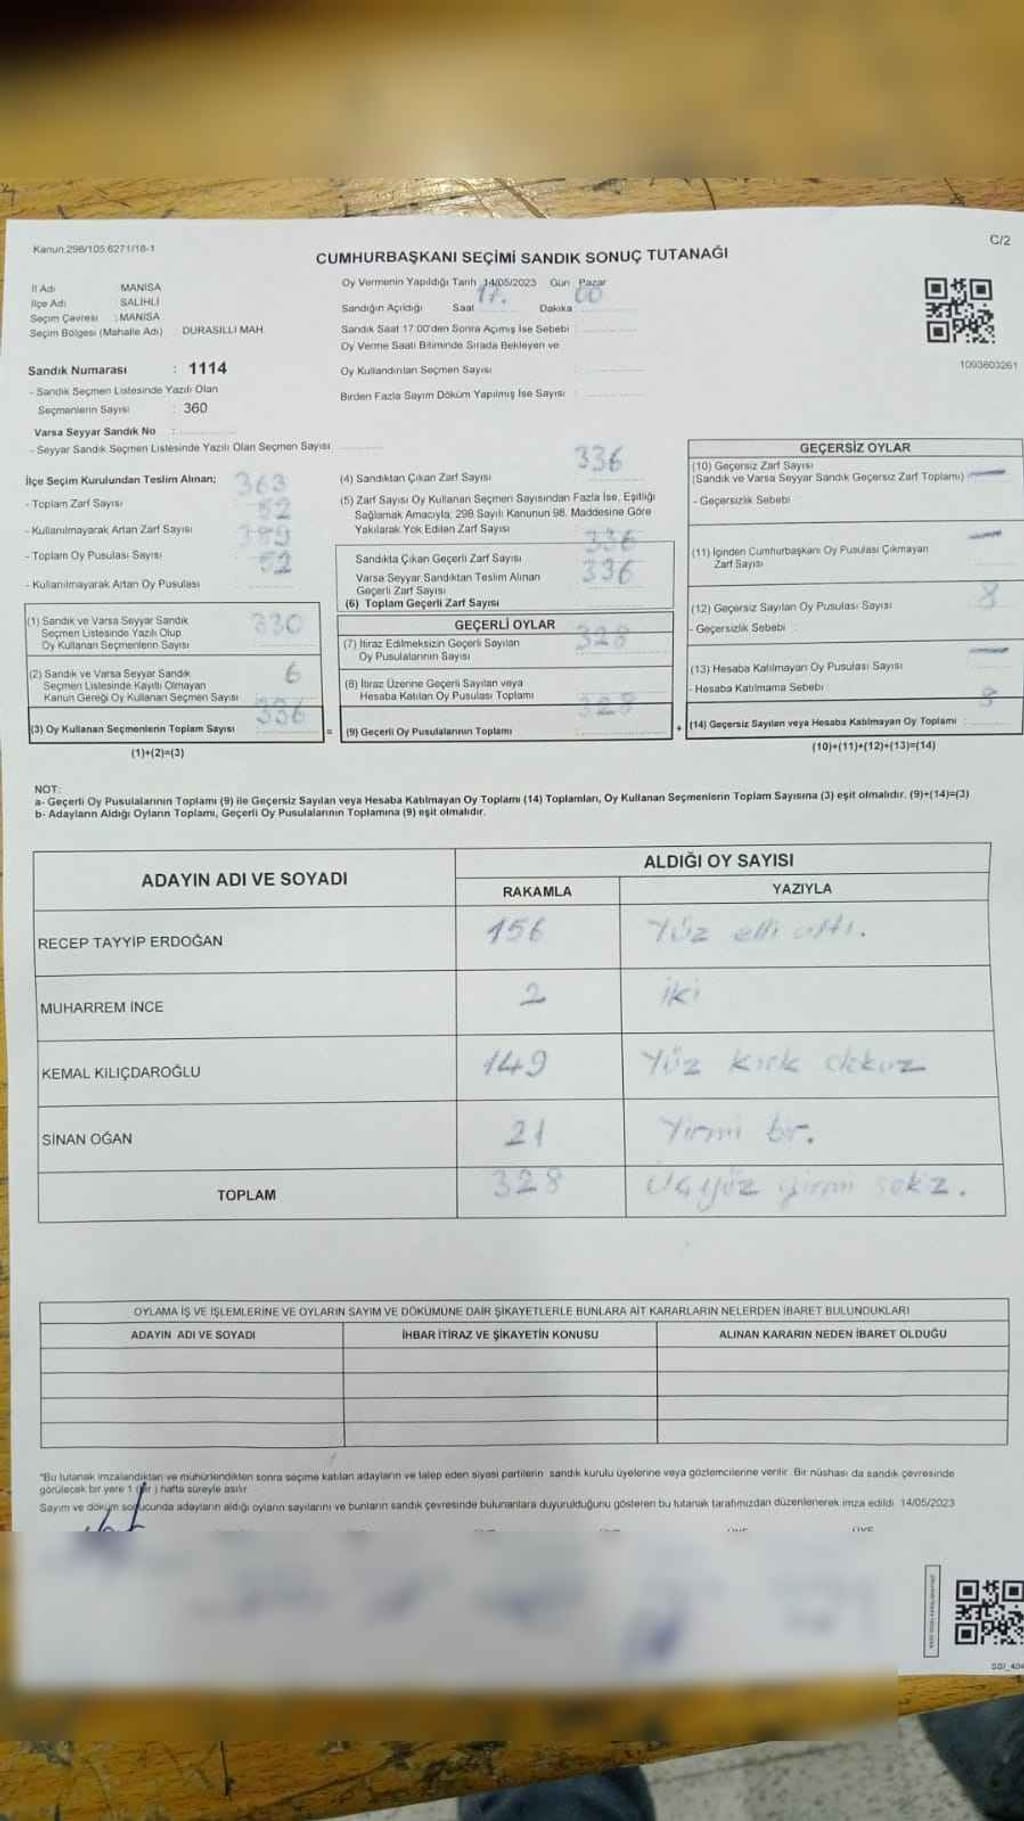 Kanun 298/105 6271/18-1
C/2
CUMHURBAŞKANI SEÇİMİ SANDIK SONUÇ TUTANAĞI
İl Adı MANİSA
İlçe Adı SALİHLİ
Seçim Çevresi : MANİSA
Seçim Bölgesi (Mahalle Adı) : DURASILLI MAH.
Oy Vermenin Yapıldığı Tarih 14/05/2023 Gün Pazar
Sandığın Açıldığı Saat 17. Dakika 00
Sandık Saat 17:00'den Sonra Açımış İse Sebebi :
Oy Verme Saati Bitiminde Sırada Bekleyen ve
Oy Kullandırılan Seçmen Sayısı
Birden Fazla Sayım Döküm Yapılmış İse Sayısı
1093603261
Sandık Numarası : 1114
- Sandık Seçmen Listesinde Yazılı Olan
Seçmenlerin Sayısı : 360
Varsa Seyyar Sandık No :
- Seyyar Sandık Seçmen Listesinde Yazılı Olan Seçmen Sayısı
İlçe Seçim Kurulundan Teslim Alınan;
- Toplam Zarf Sayısı 363
- Kullanılmayarak Artan Zarf Sayısı 52
- Toplam Oy Pusulası Sayısı
- Kullanılmayarak Artan Oy Pusulası 52
(1) Sandık ve Varsa Seyyar Sandık
Seçmen Listesinde Yazılı Olup
Oy Kullanan Seçmenlerin Sayısı 330
(2) Sandık ve Varsa Seyyar Sandık
Seçmen Listesinde Kayıtlı Olmayan
Kanun Gereği Oy Kullanan Seçmen Sayısı 6
(3) Oy Kullanan Seçmenlerin Toplam Sayısı 336
(1)+(2)=(3)
(4) Sandıktan Çıkan Zarf Sayısı 336
(5) Zarf Sayısı Oy Kullanan Seçmen Sayısından Fazla İse, Eşitliği
Sağlamak Amacıyla, 298 Sayılı Kanunun 98. Maddesine Göre
Yakılarak Yok Edilen Zarf Sayısı
Sandıkta Çıkan Geçerli Zarf Sayısı 336
Varsa Seyyar Sandıktan Teslim Alınan
Geçerli Zarf Sayısı
(6) Toplam Geçerli Zarf Sayısı 336
GEÇERLİ OYLAR
(7) İtiraz Edilmeksizin Geçerli Sayılan
Oy Pusulalarının Sayısı 328
(8) İtiraz Üzerine Geçerli Sayılan veya
Hesaba Katılan Oy Pusulası Toplamı
= (9) Geçerli Oy Pusulalarının Toplamı 328
GEÇERSİZ OYLAR
(10) Geçersiz Zarf Sayısı
(Sandık ve Varsa Seyyar Sandık Geçersiz Zarf Toplamı) —
- Geçersizlik Sebebi
(11) İçinden Cumhurbaşkanı Oy Pusulası Çıkmayan
Zarf Sayısı —
(12) Geçersiz Sayılan Oy Pusulası Sayısı 8
- Geçersizlik Sebebi
(13) Hesaba Katılmayan Oy Pusulası Sayısı —
- Hesaba Katılmama Sebebi
+ (14) Geçersiz Sayılan veya Hesaba Katılmayan Oy Toplamı 8
(10)+(11)+(12)+(13)=(14)
NOT:
a- Geçerli Oy Pusulalarının Toplamı (9) ile Geçersiz Sayılan veya Hesaba Katılmayan Oy Toplamı (14) Toplamları, Oy Kullanan Seçmenlerin Toplam Sayısına (3) eşit olmalıdır. (9)+(14)=(3)
b- Adayların Aldığı Oyların Toplamı, Geçerli Oy Pusulalarının Toplamına (9) eşit olmalıdır.
ADAYIN ADI VE SOYADI
ALDIĞI OY SAYISI
RAKAMLA YAZIYLA
RECEP TAYYİP ERDOĞAN 156 Yüz elli altı.
MUHARREM İNCE 2 iki
KEMAL KILIÇDAROĞLU 149 Yüz kırk dokuz
SİNAN OĞAN 21 Yirmi bir.
TOPLAM 328 Üçyüz yirmi sekiz.
OYLAMA İŞ VE İŞLEMLERİNE VE OYLARIN SAYIM VE DÖKÜMÜNE DAİR ŞİKAYETLERLE BUNLARA AİT KARARLARIN NELERDEN İBARET BULUNDUKLARI
ADAYIN ADI VE SOYADI İHBAR İTİRAZ VE ŞİKAYETİN KONUSU ALINAN KARARIN NEDEN İBARET OLDUĞU
"Bu tutanak imzalandıktan ve mühürlendikten sonra seçime katılan adayların ve talep eden siyasi partilerin sandık kurulu üyelerine veya gözlemcilerine verilir. Bir nüshası da sandık çevresinde
görülecek bir yere 1 (bir) hafta süreyle asılır.
Sayım ve döküm sonucunda adayların aldığı oyların sayılarını ve bunların sandık çevresinde bulunanlara duyurulduğunu gösteren bu tutanak tarafımızdan düzenlenerek imza edildi 14/05/2023